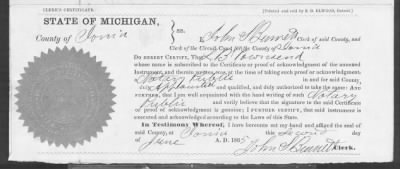 CLERK'S CERTIFICATE. [Printed and sold by E. B. ELWOOD, Detroit.]
STATE OF MICHIGAN,
County of Ionia ss. John S Bennett Clerk of said County, and
Clerk of the Circuit Court for the County of Ionia
DO HEREBY CERTIFY, That Townsend
whose name is subscribed to the Certificate or proof of acknowledgment of the annexed
Instrument, and therein written, was at the time of taking such proof or acknowledgment,
a Notary Public in and for said County,
duly appointed and qualified, and duly authorized to take the same: And
FURTHER, that I am well acquainted with the hand writing of such Notary
Public and verily believe that the signature to the said Certificate
or proof of acknowledgment is genuine; I FURTHER CERTIFY, that said instrument is
executed and acknowledged according to the Laws of this State.
In Testimony Whereof, I have hereunto set my hand and affixed the seal of
said County, at Ionia this Second day
of June A. D. 186
John S Bennett Clerk.